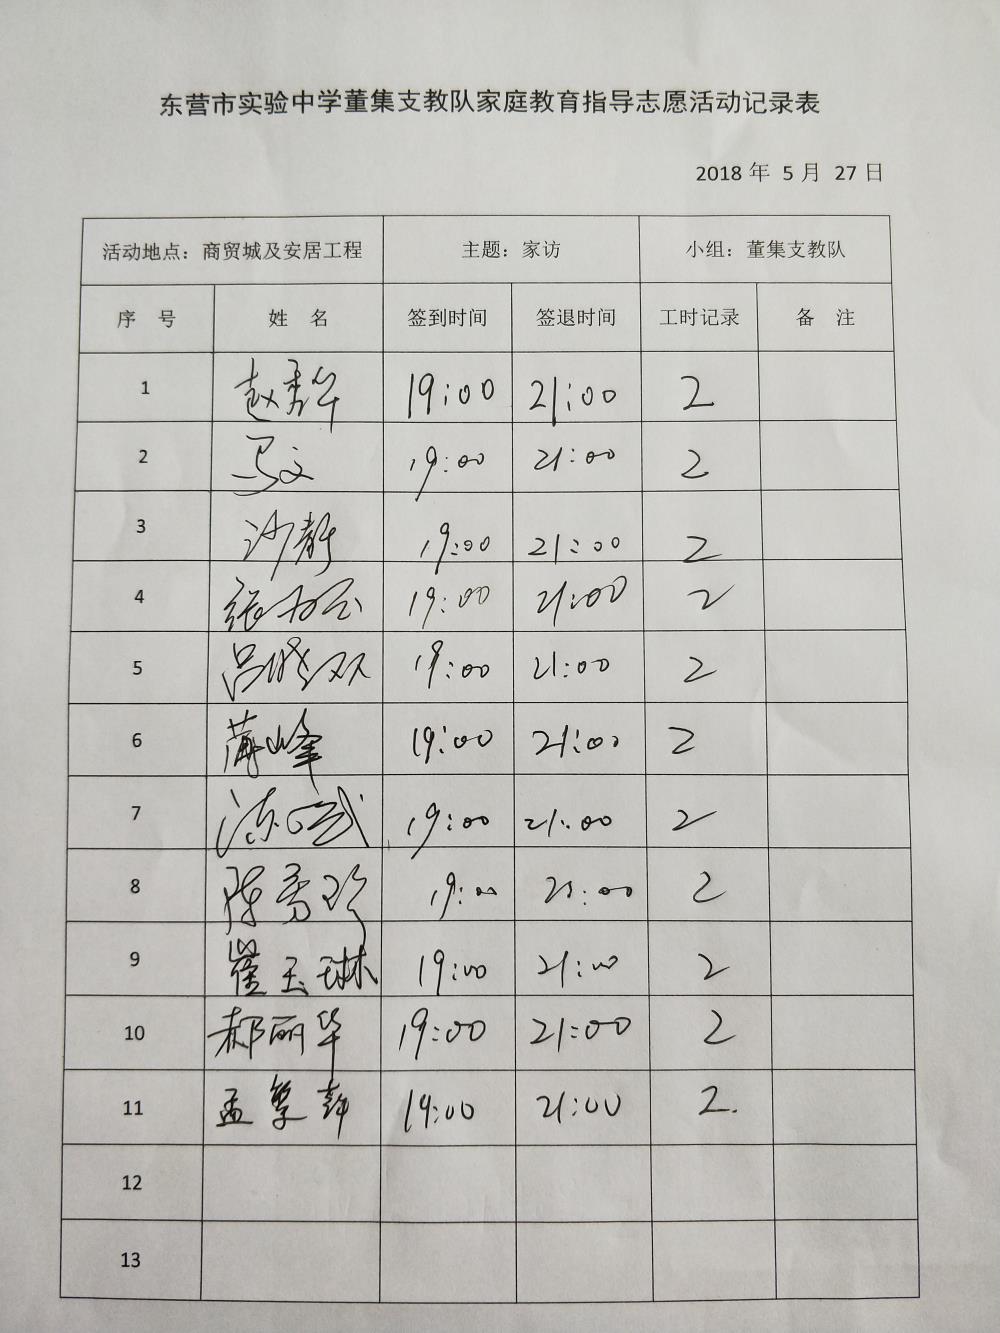 东营市实验中学董集支教队家庭教育指导志愿活动记录表
2018 年 5 月 27 日
活动地点：商贸城及安居工程 主题：家访 小组：董集支教队
序 号 姓 名 签到时间 签退时间 工时记录 备 注
1 赵秀华 19:00 21:00 2
2 马文 19:00 21:00 2
3 沙静 19:00 21:00 2
4 19:00 21:00 2
5 吕晓双 19:00 21:00 2
6 蒲峰 19:00 21:00 2
7 19:00 21:00 2
8 陈秀珍 19:00 21:00 2
9 崔玉琳 19:00 21:00 2
10 郝丽华 19:00 21:00 2
11 19:00 21:00 2.
12
13